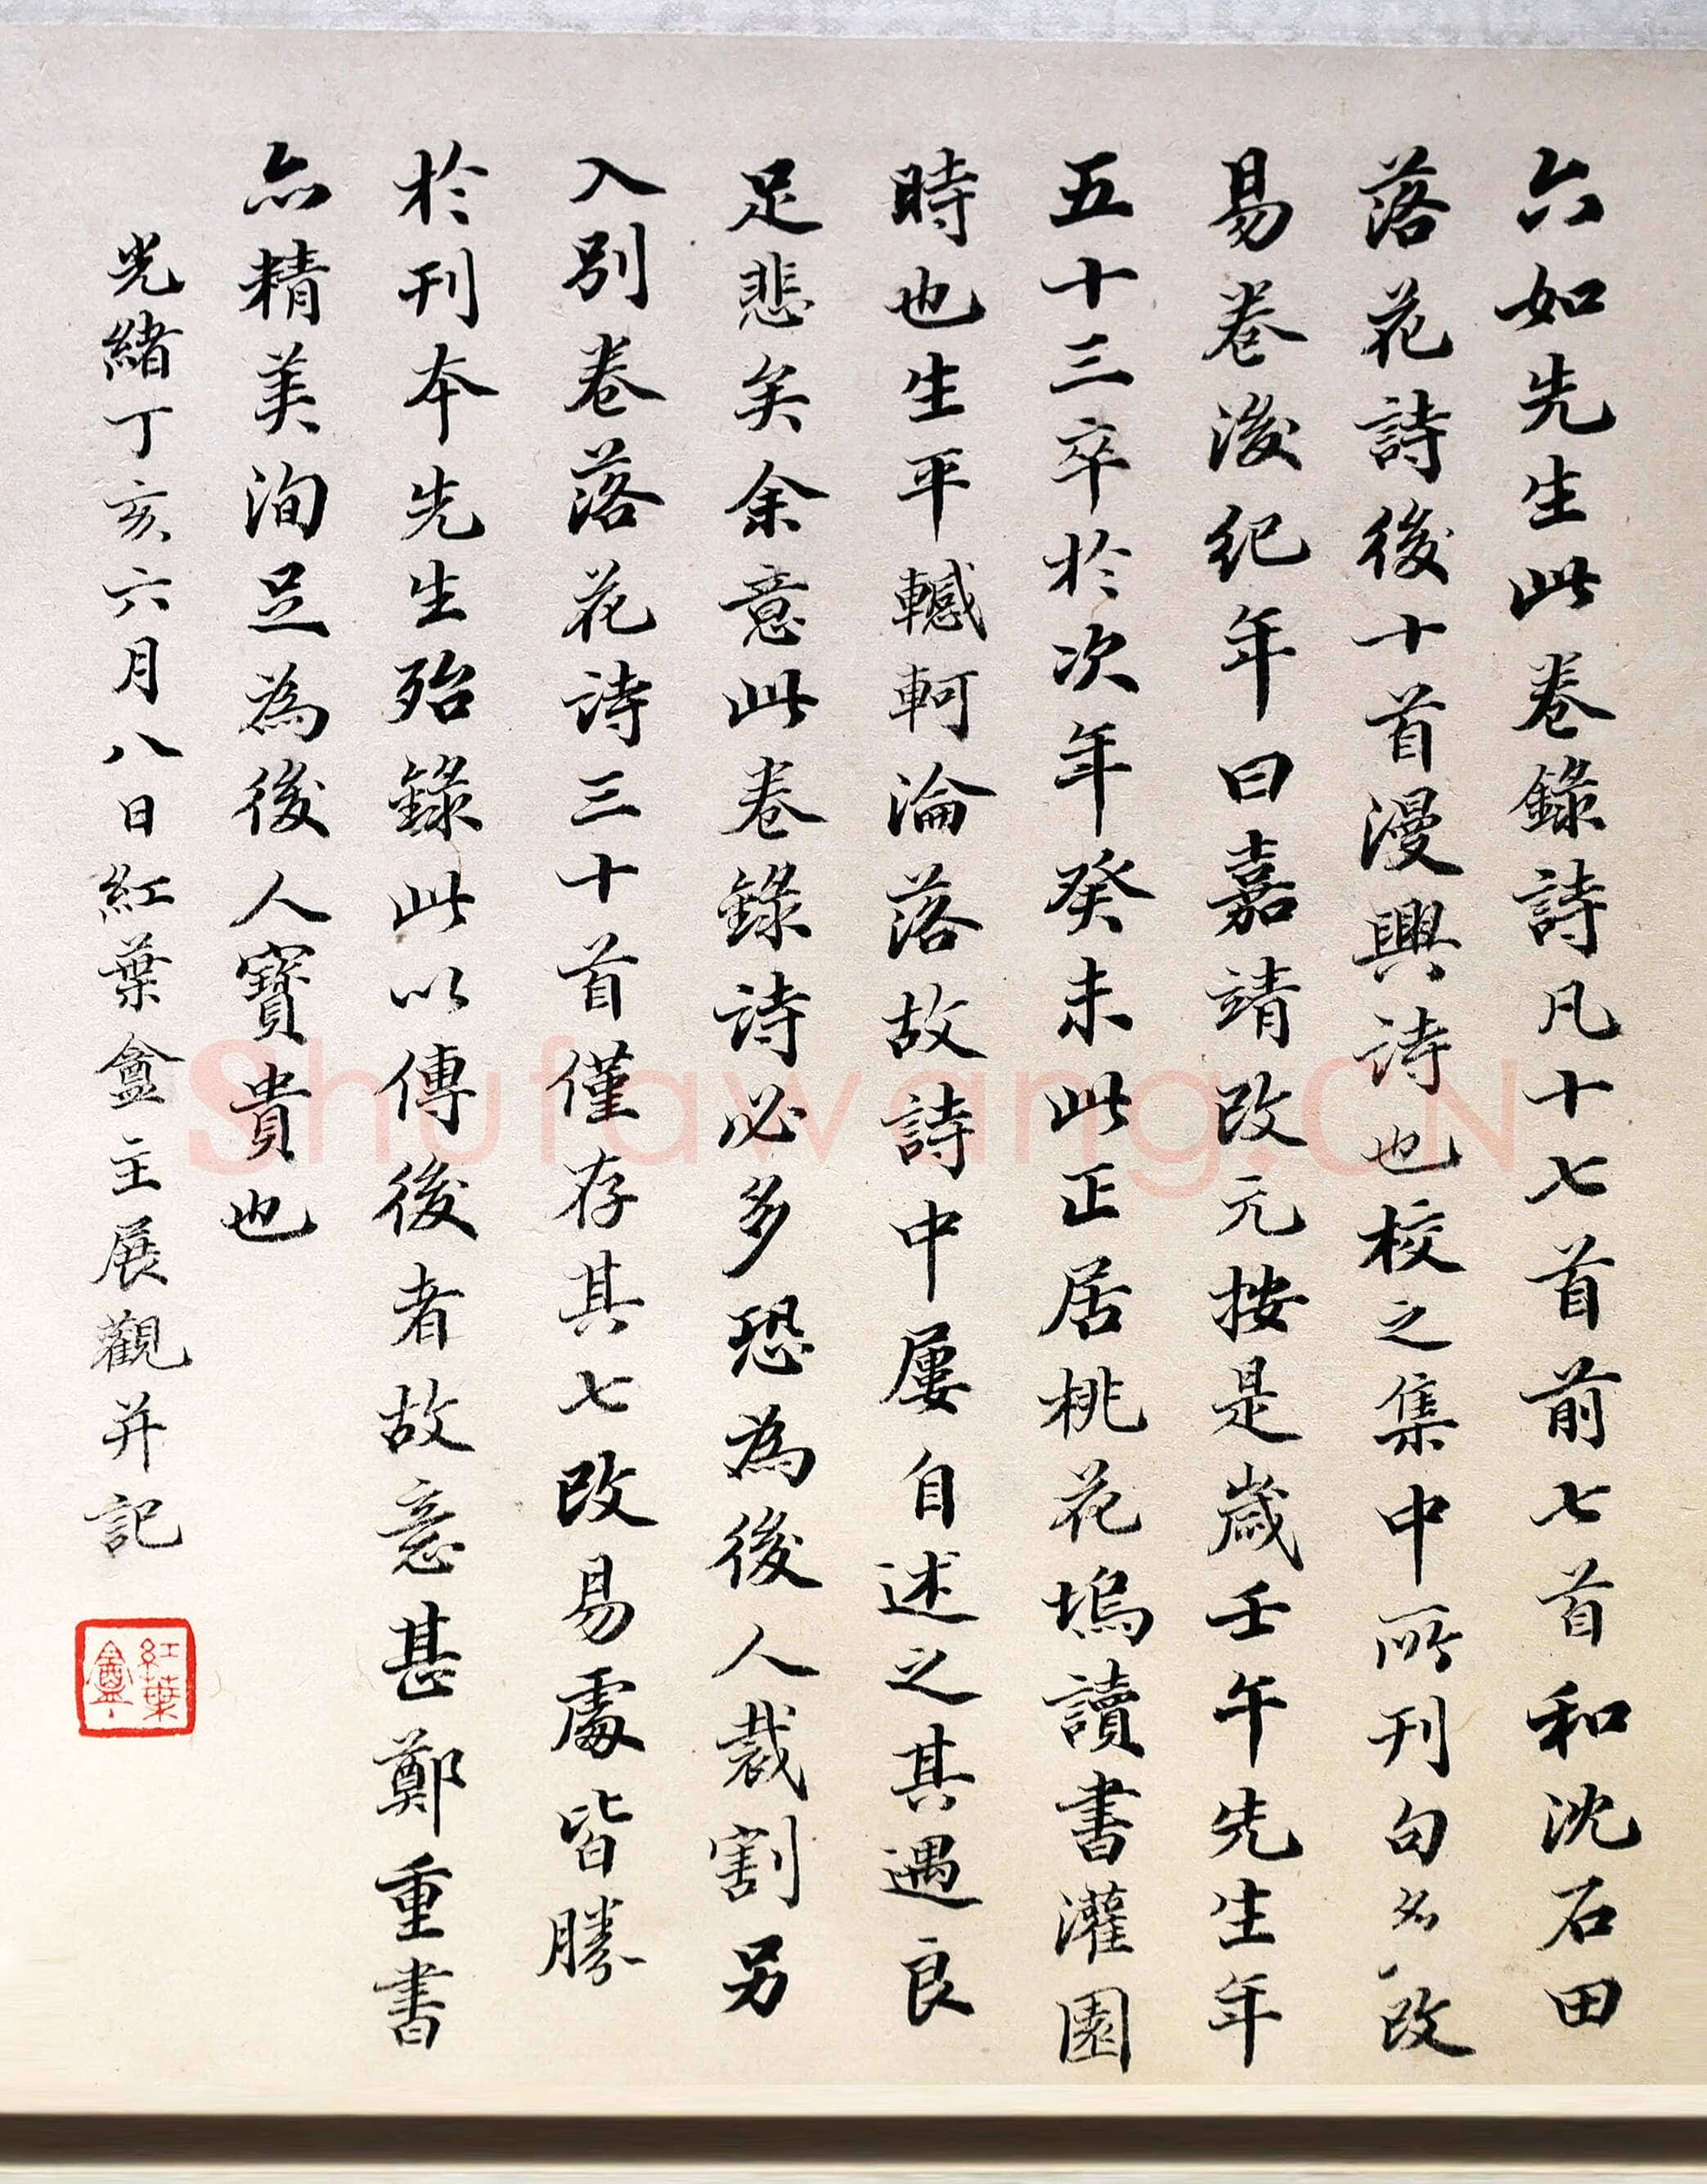 六如先生此卷錄詩凡十七首前七首和沈石田
落花詩後十首漫興詩也校之集中所刊句多改
易卷後紀年曰嘉靖改元按是歲壬午先生年
五十三卒於次年癸未此正居桃花塢讀書灌園
時也生平轗軻淪落故詩中屢自述之其遇良
足悲矣余意此卷錄詩必多恐為後人裁割另
入別卷落花詩三十首僅存其七改易處皆勝
於刊本先生殆錄此以傳後者故意甚鄭重書
亦精美洵足為後人寶貴也
光緒丁亥六月八日紅葉盦主展觀并記
紅葉
盦
Shufawang.CN